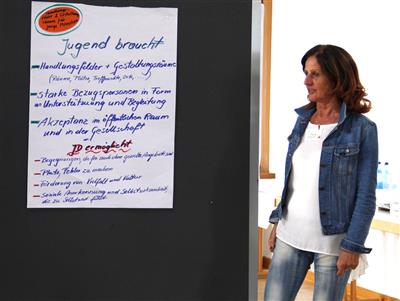 Jugend braucht
- Handlungsfelder + Gestaltungsräume
(Räume, Plätze, Treffpunkte, Orte, ...)
- starke Bezugspersonen in Form
von Unterstützung und Begleitung
- Akzeptanz im öffentlichen Raum
und in der Gesellschaft
JD ermöglicht
- Begegnungen, da für auch ohne Angebote sind
- Plätze, Fehler zu machen
- Förderung von Vielfalt und Kultur
- soziale Anerkennung und Selbstwirksamkeit,
die zu Selbstwert führt